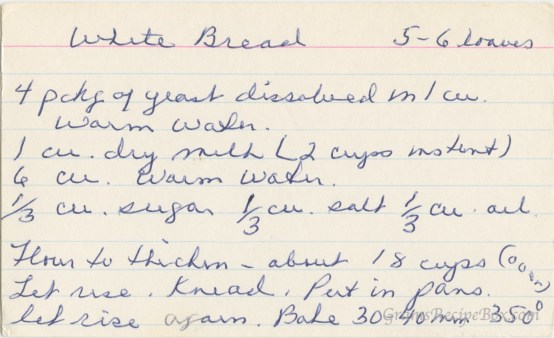 White Bread 5-6 loaves
4 pckg of yeast dissolved in 1 cu.
warm water.
1 cu. dry milk (2 cups instent)
6 cu. warm water.
1/3 cu. sugar 1/3 cu. salt 1/3 cu. oil.
Flour to thicken - about 18 cups
Let rise. Knead. Put in pans.
let rise again. Bake 30-40 min 350°
GramsRecipeBox.com